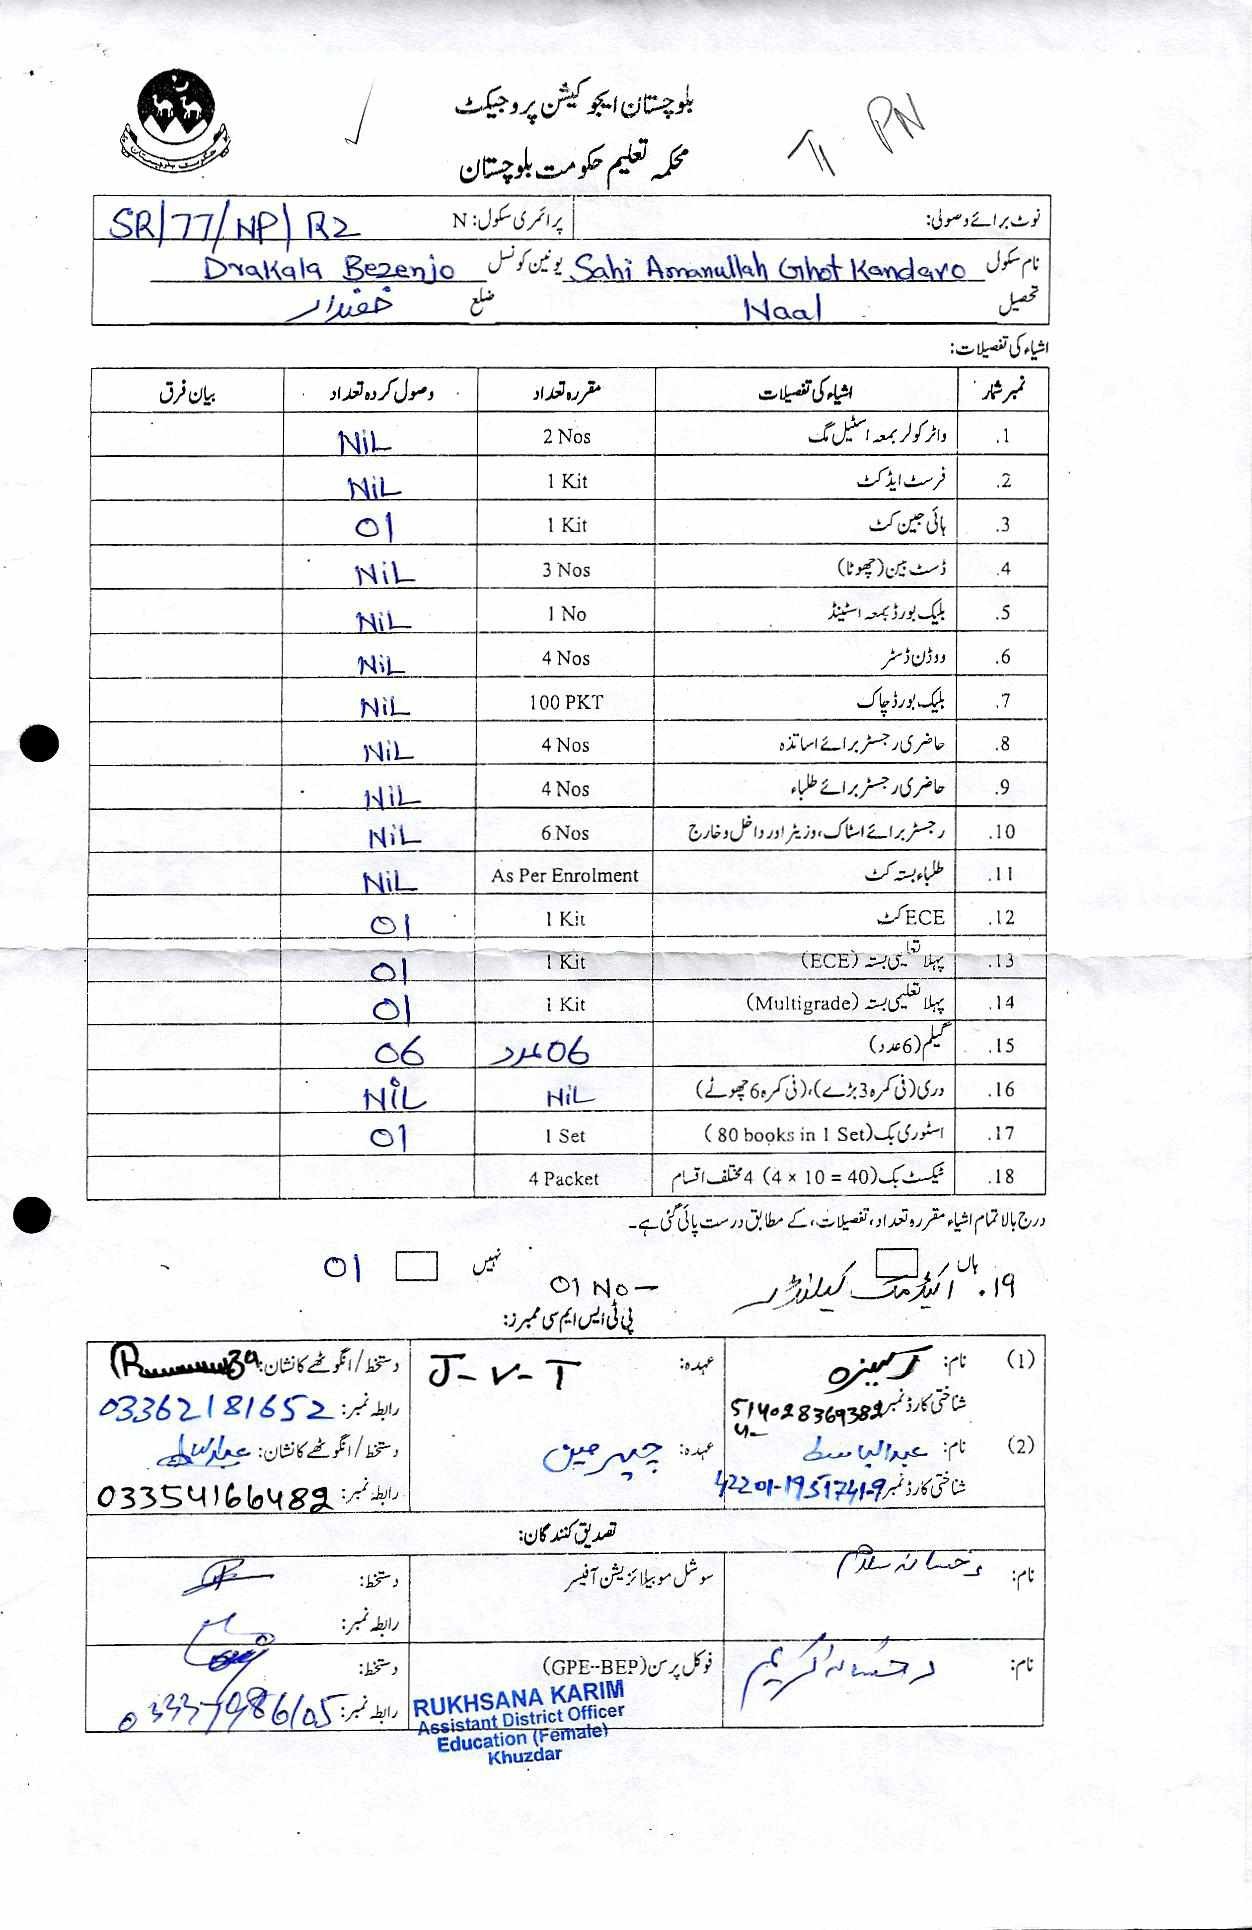 بلوچستان ایجوکیشن پروجیکٹ
محکمہ تعلیم حکومت بلوچستان
PN
نوٹ برائے وصولی: پرائمری سکول: N SR/77/NP/R2
نام سکول Sahi Amanullah Ghot Kandaro یونین کونسل Drakala Bezenjo
تحصیل Naal ضلع خضدار
اشیاء کی تفصیلات:
نمبر شمار اشیاء کی تفصیلات مقررہ تعداد وصول کردہ تعداد بیان فرق
1. واٹر کولر بمعہ اسٹیل مگ 2 Nos NiL
2. فرسٹ ایڈ کٹ 1 Kit NiL
3. ہائی جین کٹ 1 Kit 01
4. ڈسٹ بین (چھوٹا) 3 Nos NiL
5. بلیک بورڈ بمعہ اسٹینڈ 1 No NiL
6. ووڈن ڈسٹر 4 Nos NiL
7. بلیک بورڈ چاک 100 PKT NiL
8. حاضری رجسٹر برائے اساتذہ 4 Nos NiL
9. حاضری رجسٹر برائے طلباء 4 Nos NiL
10. رجسٹر برائے اسٹاک، وزیٹر اور داخل و خارج 6 Nos NiL
11. طلباء بستہ کٹ As Per Enrolment NiL
12. ECE کٹ 1 Kit 01
13. پہلا تعلیمی بستہ (ECE) 1 Kit 01
14. پہلا تعلیمی بستہ (Multigrade) 1 Kit 01
15. گیلم (6 عدد) 06 عدد 06
16. دری (فی کمرہ 3 بڑے)، (فی کمرہ 6 چھوٹے) NiL NiL
17. اسٹوری بک (80 books in 1 Set) 1 Set 01
18. ٹیکسٹ بک (4 × 10 = 40) 4 مختلف اقسام 4 Packet
درج بالا تمام اشیاء مقررہ تعداد، تفصیلات، کے مطابق درست پائی گئی ہے۔
ہاں نہیں 01
19. اکیڈمک کیلنڈر 01 No –
پی ٹی ایس ایم سی ممبرز:
(1) نام: عہدہ: J-V-T دستخط/انگوٹھے کا نشان:
شناختی کارڈ نمبر رابطہ نمبر: 03362181652
(2) نام: عبدالباسط عہدہ: چیئرمین دستخط/انگوٹھے کا نشان:
شناختی کارڈ نمبر 42201-1951741-9 رابطہ نمبر: 03354166482
تصدیق کنندگان:
نام: رخسانہ سلام سوشل موبیلائزیشن آفیسر دستخط:
رابطہ نمبر:
نام: رخسانہ کریم فوکل پرسن (GPE--BEP) دستخط:
رابطہ نمبر:
RUKHSANA KARIM
Assistant District Officer
Education (Female)
Khuzdar